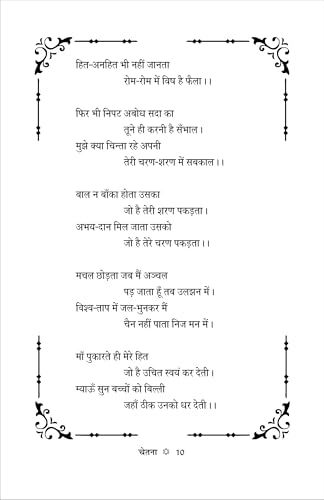 हित-अनहित भी नहीं जानता
रोम-रोम में विष है फैला।।
फिर भी निपट अबोध सदा का
तूने ही करनी है सँभाल।
मुझे क्या चिन्ता रहे अपनी
तेरी चरण-शरण में सबकाल।।
बाल न बाँका होता उसका
जो है तेरी शरण पकड़ता।
अभय-दान मिल जाता उसको
जो है तेरे चरण पकड़ता।।
मचल छोड़ता जब मैं अञ्चल
पड़ जाता हूँ तब उलझन में।
विश्व-ताप में जल-भुनकर मैं
चैन नहीं पाता निज मन में।
माँ पुकारते ही मेरे हित
जो है उचित स्वयं कर देती।
म्याऊँ सुन बच्चों को बिल्ली
जहाँ ठीक उनको धर देती।।
चेतना ✡ 10